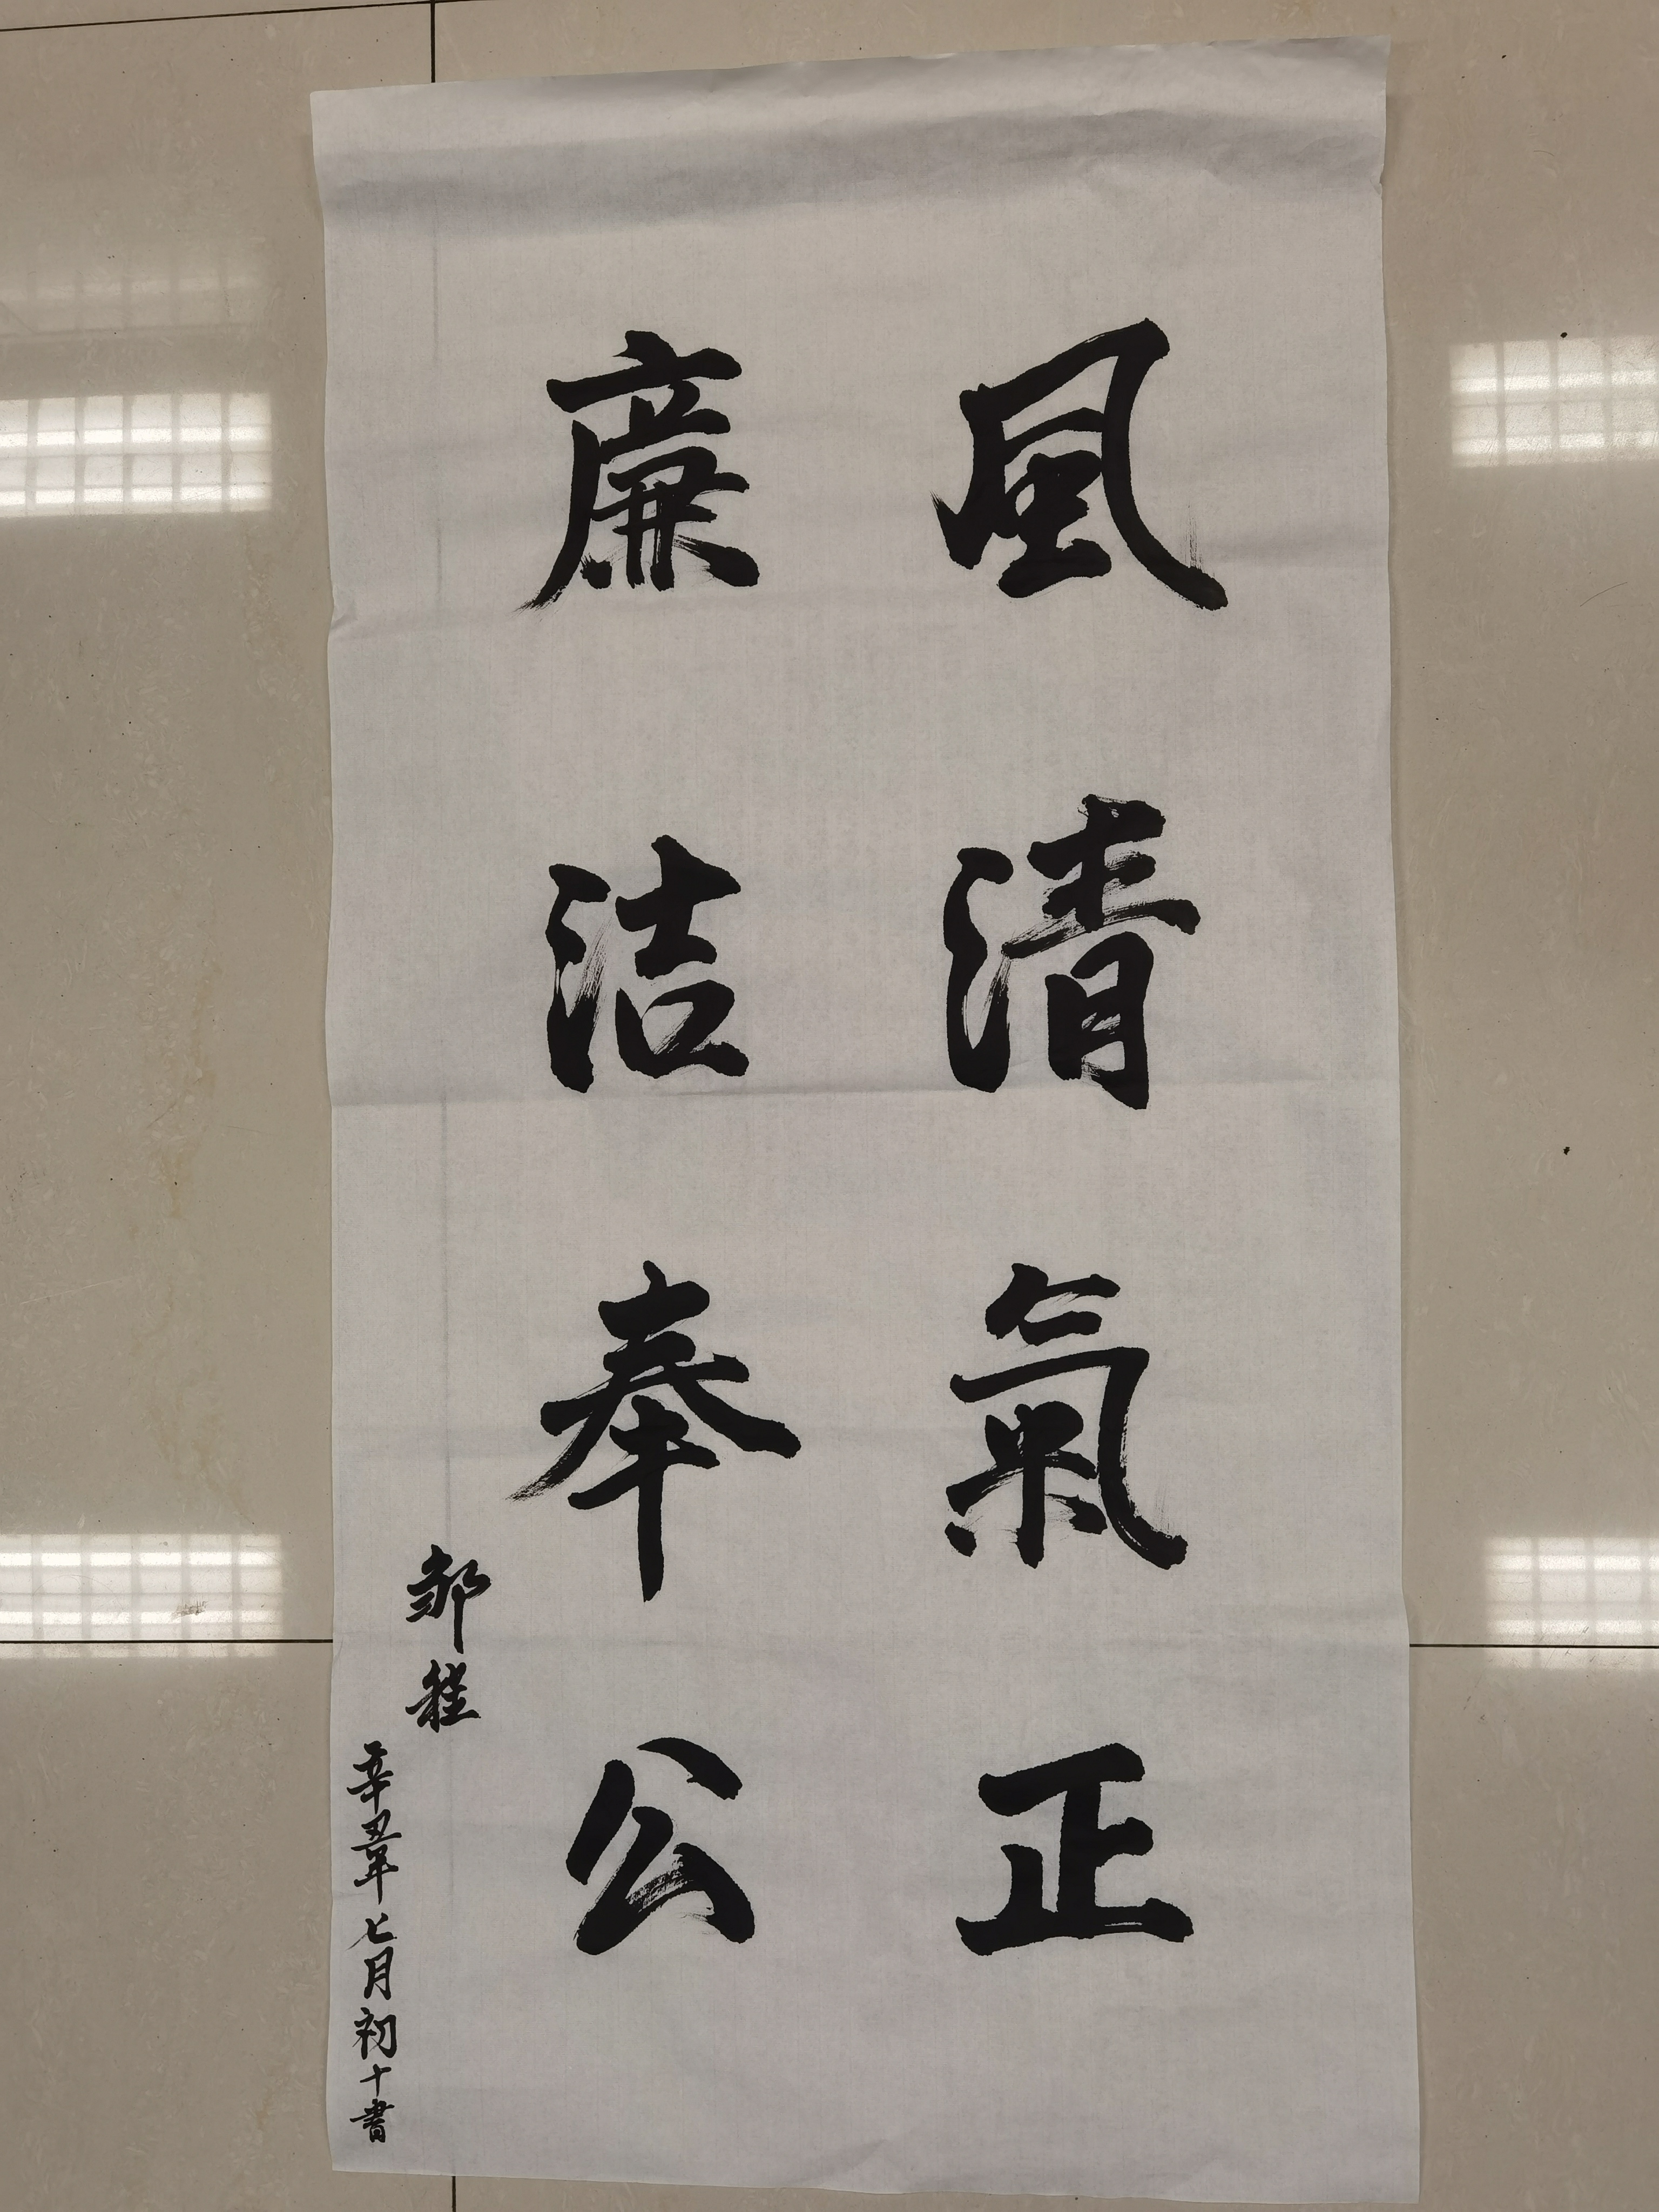 風清氣正
廉洁奉公
邹程
辛丑年七月初十書